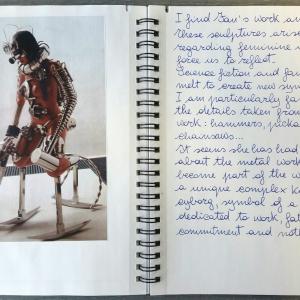 I find Jan's work an
these sculptures arise
regarding feminine
force us to reflect.
Science fiction and fa
melt to create new syn
I am particularly fa
the details taken from
work: hammers, picka
chainsaws...
It seems she has had
about the metal work
become part of the w
a unique complex
cyborg, symbol of a
dedicated to work, fat
commitment and not